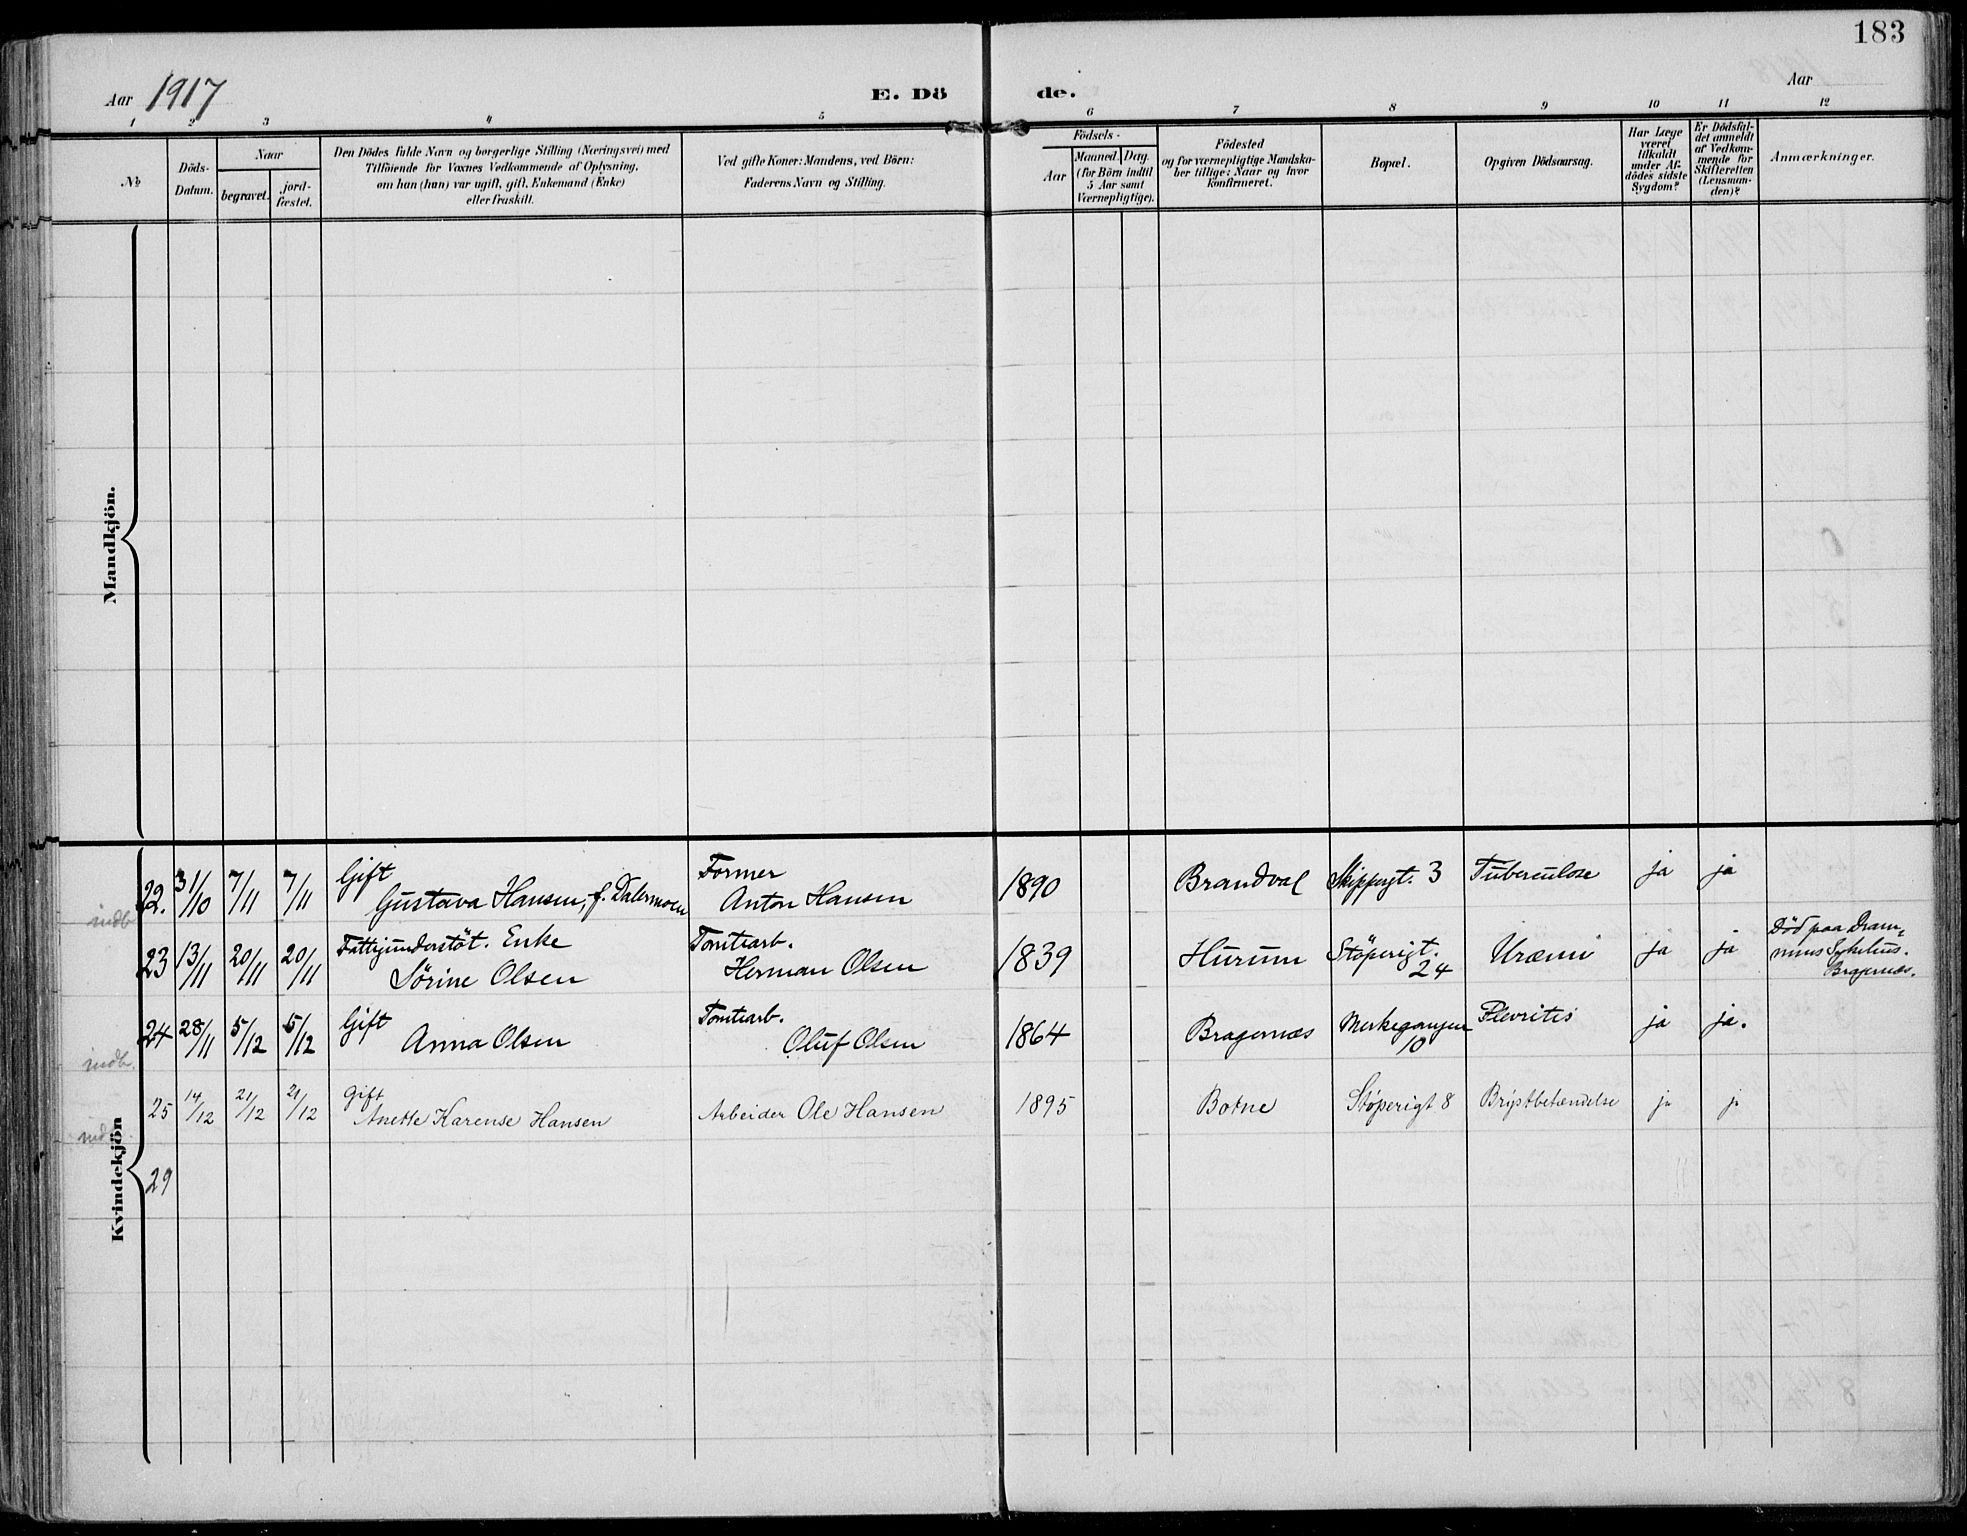 183
Aar 1917
E. Döde.
Aar
1 2 3 4 5 6 7 8 9 10 11 12
No
Döds-Datum.
Naar
begravet.
jord-fæstet.
Den Dödes fulde Navn og borgerlige Stilling (Næringsvei) med
Tilföiende for Voxnes Vedkommende af Oplysning,
om han (hun) var ugift, gift, Enkemand (Enke)
eller fraskilt.
Ved gifte Koner: Mandens, ved Börn:
Faderens Navn og Stilling.
Födsels-
Aar
Maaned. Dag.
(for Börn indtil
5 Aar samt
Værnepligtige).
Födested
og for værnepligtige Mandska-
ber tillige: Naar og hvor
konfirmeret.
Bopæl.
Opgiven Dödsaarsag.
Har Læge
været
tilkaldt
under Af-
dödes sidste
Sygdom?
Er Dödsfal-
det anmeldt
af Vedkom-
mende for
Skifteretten
(Lensman-
den)?
Anmærkninger.
Mandkjön.
Kvindekjön
22. 31/10 7/11 7/11 Gift Former
indb. Gustava Hansen, f. Dalermoen Anton Hansen 1890 Brandval Skippergt. 3 Tuberculose ja ja
23 13/11 20/11 20/11 Fattigunderstöt. Enke Tomtearb.
Sörine Olsen Herman Olsen 1839 Hurum Støperigt. 24 Uræmi ja ja Död paa Dram-
mens Sykehus.
Bragernæs.
24 28/11 5/12 5/12 Gift Tomtearb.
indb. Anna Olsen Oluf Olsen 1864 Bragernæs Merkegangen 10 Plevritis ja ja.
25 14/12 21/12 21/12 Gift
indb. Anette Karense Hansen Arbeider Ole Hansen 1895 Botne Støperigt 8 Brystbetændelse ja j
29